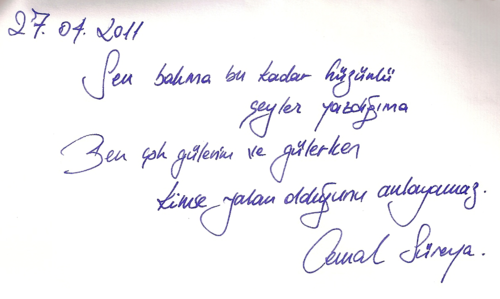 27.04.2011
Sen bakma bu kadar hüzünlü
şeyler yazdığıma
Ben çok gülerim ve gülerken
kimse yalan olduğunu anlayamaz.
Cemal Süreya.